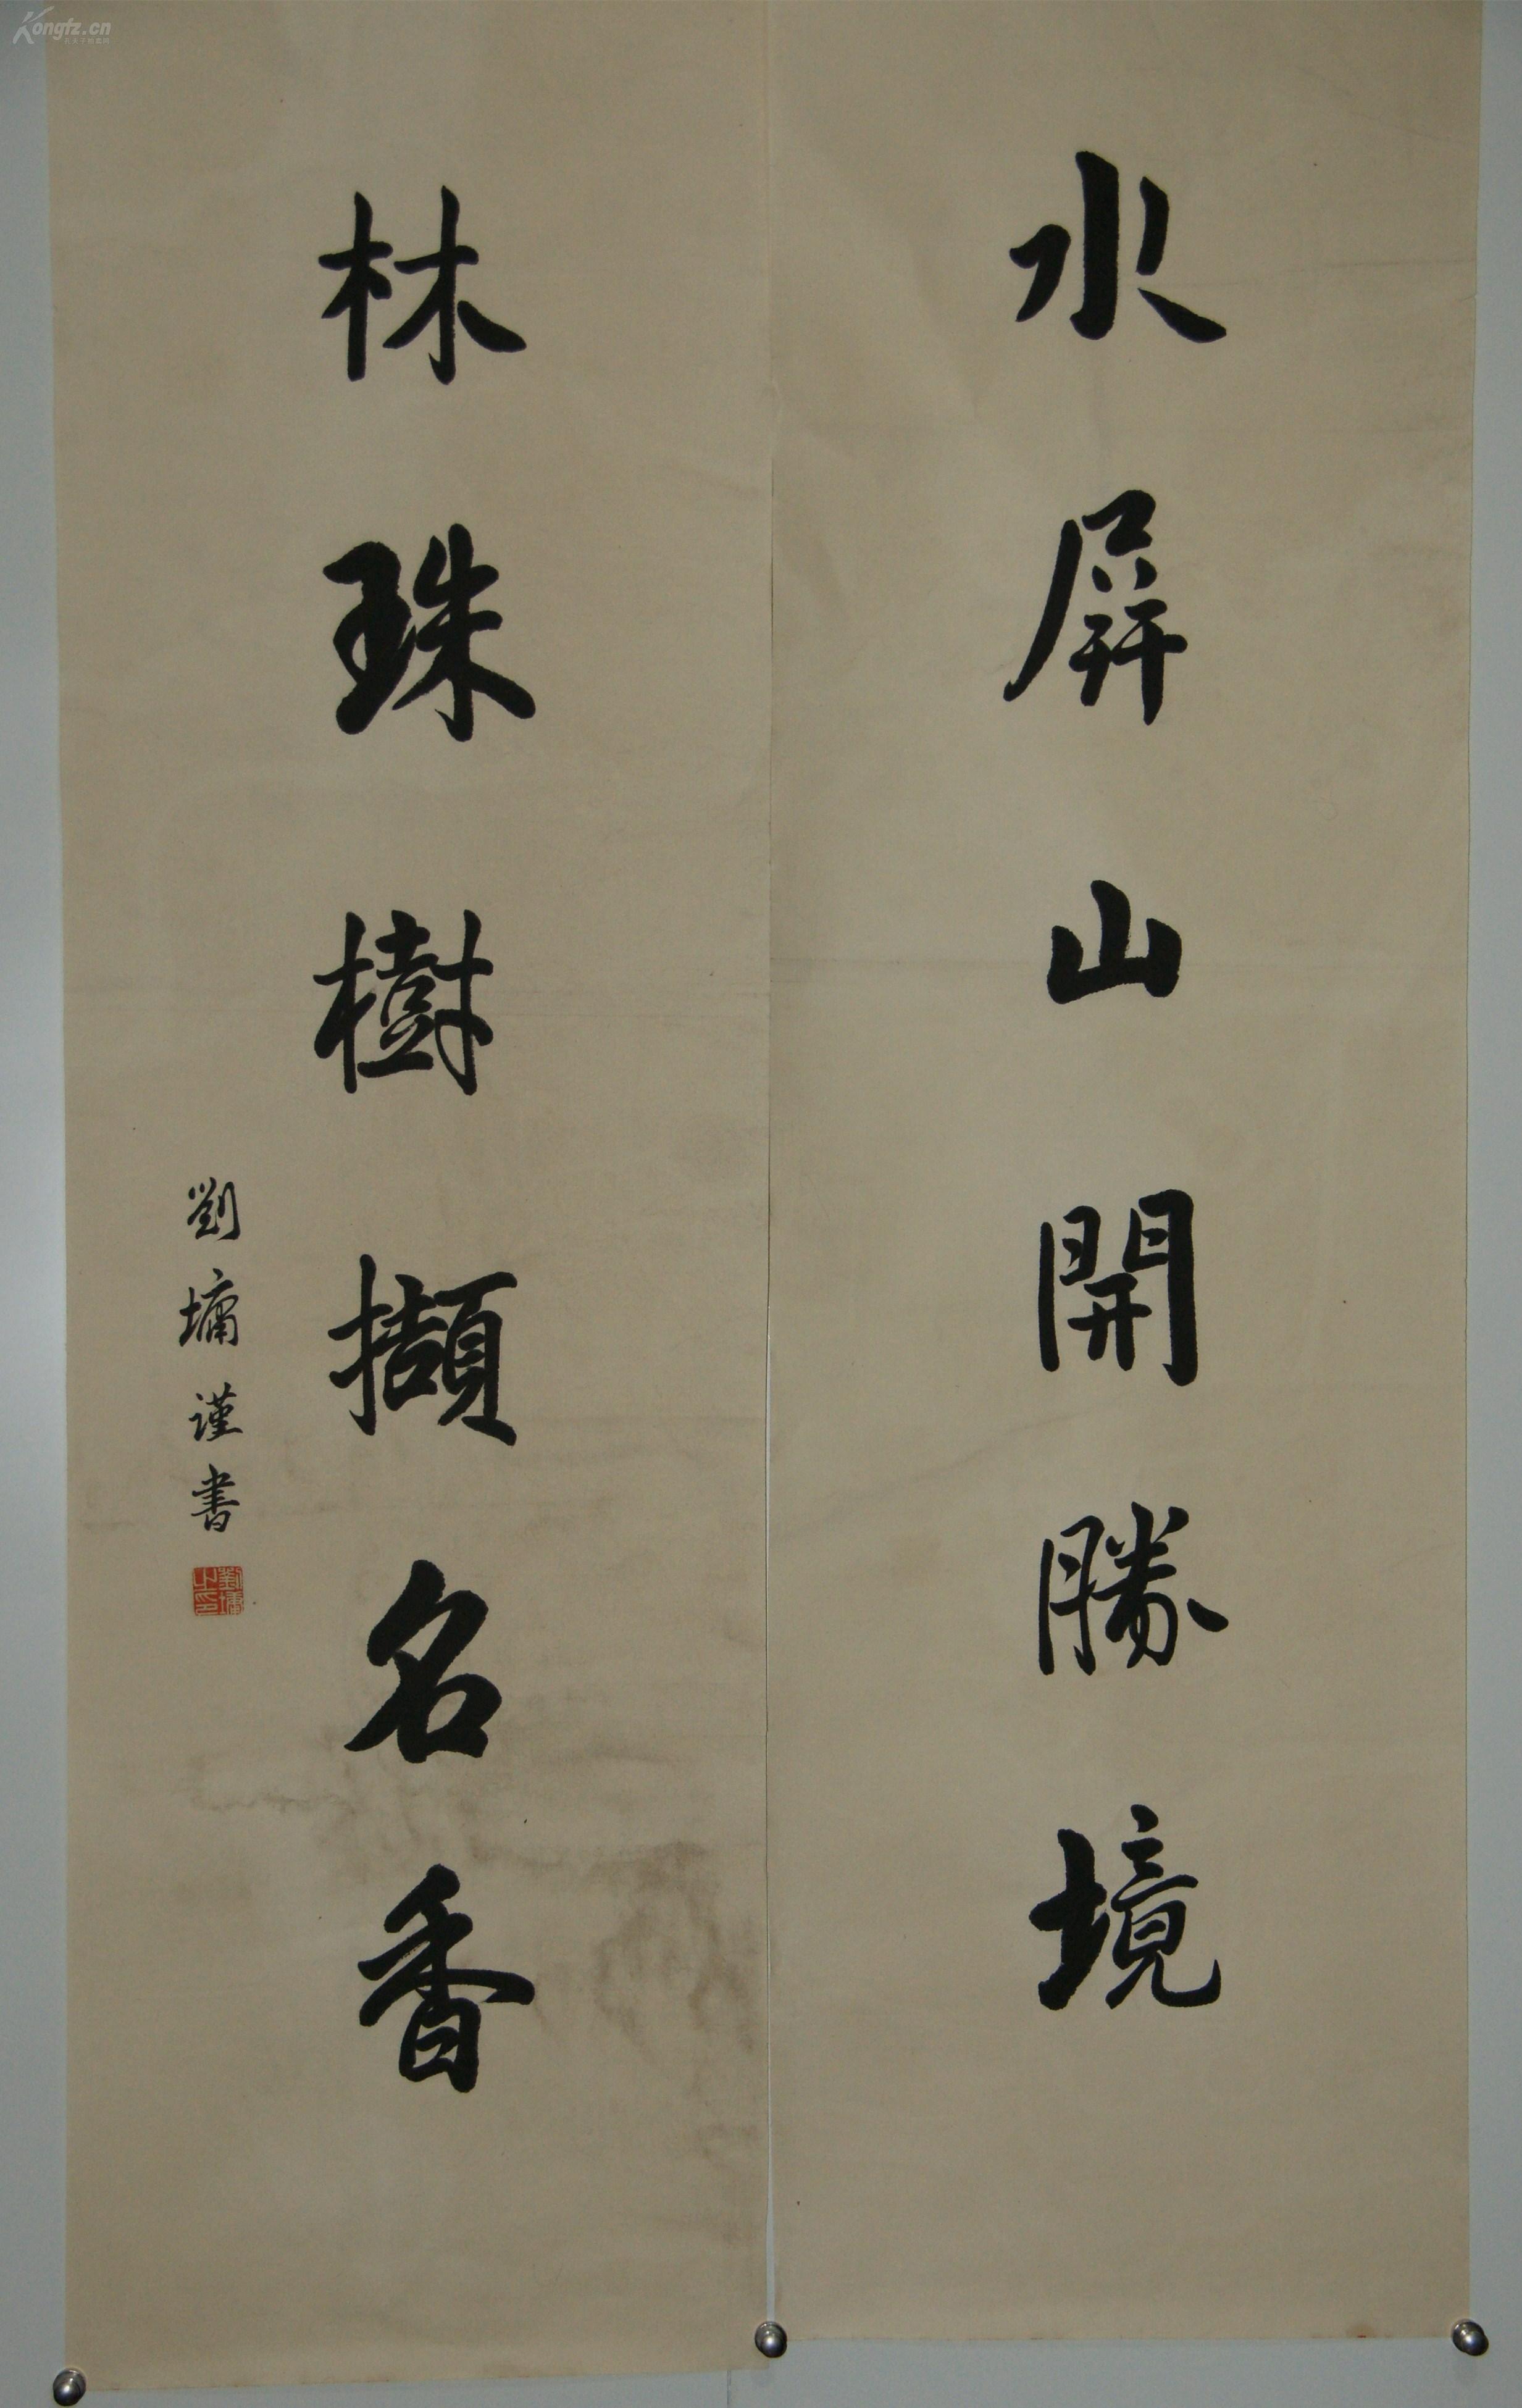 水屏山開勝境
林珠樹擷名香
劉墉谨書
劉墉之印
Kongfz.cn